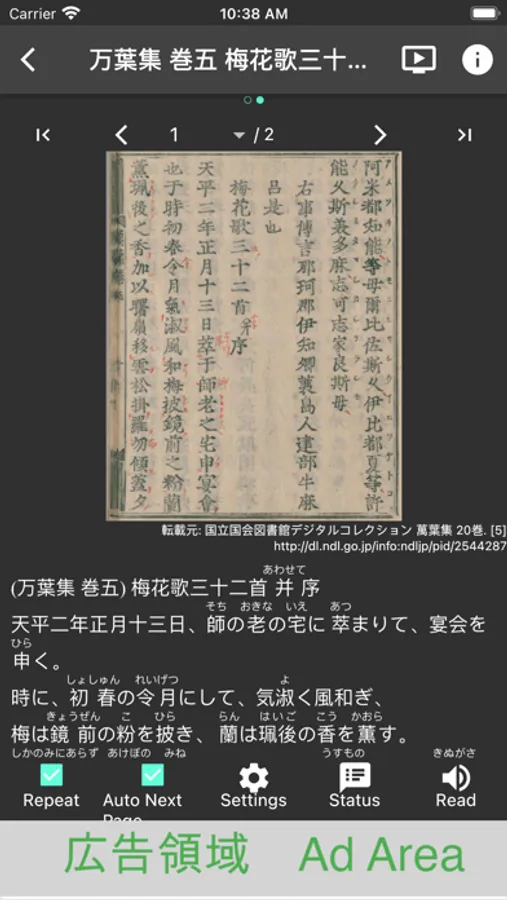 Carrier 10:38 AM
万葉集 巻五 梅花歌三十...
1 / 2
阿米都知能等母尓比佐斯久伊比都夏等許
能久斯美多麻志可志家良斯母
右事傳言那珂郡伊知郷蓑島人建部牛麻
呂是也
梅花歌三十二首并序
天平二年正月十三日萃于師老之宅申宴會
也于時初春令月氣淑風和梅披鏡前之粉蘭
薫珮後之香加以曙嶺移雲松掛羅而傾盖夕
転載元: 国立国会図書館デジタルコレクション 萬葉集 20巻. [5]
http://dl.ndl.go.jp/info:ndljp/pid/2544287
あわせて
(万葉集 巻五) 梅花歌三十二首 并 序
そち おきな いえ あつ
天平二年正月十三日、師の老の宅に 萃まりて、宴会を
ひら
申く。
しょしゅん れいげつ よ
時に、初春の令月にして、気淑く風和ぎ、
きょうぜん こ ひら らん はいご こう かおら
梅は鏡前の粉を披き、蘭は珮後の香を薫す。
しかのみにあらず あけぼの みね うすもの きぬがさ
Repeat
Auto Next Page
Settings
Status
Read
広告領域 Ad Area